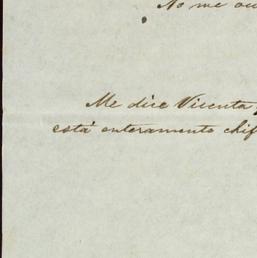 No me
Me dice Vicenta
está enteramente chif